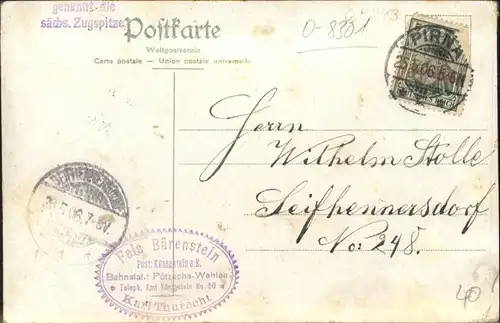 genannt die
sächs. Zugspitze.
Postkarte
Weltpostverein
Carte postale — Union postale universelle
O-8301
PIRNA
Herrn
Wilhelm Stolle
Seifhennersdorf
No: 248.
Fels Bärenstein
Post: Königstein a.E.
Bahnstat.: Pötzscha-Wehlen
Teleph. Amt Königstein No. 80
Karl Thurecht
40